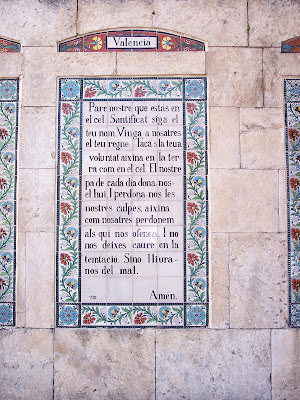 Valencia
Pare nostre, que estas en
el cel. Santificat siga el
teu nom Vinga a nosatres
el teu regne. Faça's la teua
voluntat aixina en la ter
ra com en el cel. El nostre
pa de cada dia dona-nos-
el hui I perdona-nos les
nostres culpes, aixina
com nosatres perdonem
als qui nos ofenen. I no
nos deixes caure en la
temtació. Sino lliura-
nos del mal.
Amen.